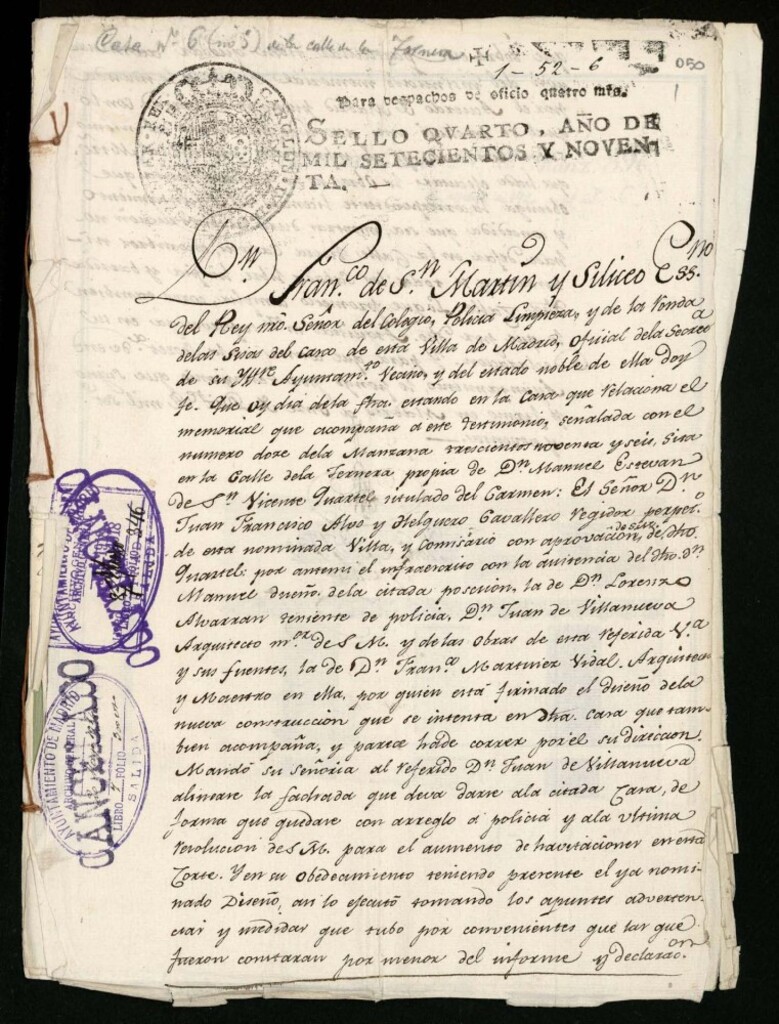 Casa Nº 6 (nº 5) de la calle de la Ternera
1-52-6
050
1
Para despachos de oficio quatro mrs.
SELLO QVARTO, AÑO DE
MIL SETECIENTOS Y NOVEN
TA.
Dn. Fran.co de S.n Martin y Siliceo Ess.no
del Rey nro. Señor del Colegio, Policia Limpieza, y de la Ronda
delas Sisas del Casco de esta Villa de Madrid, oficial dela Secret.a
de su Yll.re Ayuntam.to Vecino, y del estado noble de ella Doy
fe. Que oy dia dela fha. estando en la Casa que relaciona el
memorial que acompaña a este testimonio, señalada con el
numero doce dela Manzana trescientos noventa y seis, sita
en la Calle dela Ternera propia de D.n Manuel Estevan
de S.n Vicente Quartel titulado del Carmen: El Señor D.n
Juan Francisco Alvo y Helguero Cavallero Regidor perpet.o
de esta nominada Villa, y Comisario con aprovacion de S.M. de dho
Quartel: por antemi el infraescrito con la asistencia del dho. D.n
Manuel dueño dela citada posesion, la de D.n Lorenzo
Alvarran teniente de policia, D.n Juan de Villanueva
Arquitecto m.or de S.M. y de las obras de esta referida V.a
y sus fuentes, la de D.n Fran.co Martinez Vidal. Arquitecto
y Maestro en ella, por quien está firmado el diseño dela
nueva construccion que se intenta en dha. casa que tam-
bien acompaña, y parece hade correr por el su direccion.
Mandó su Señoria al referido D.n Juan de Villanueva
alinease la fachada que deva darse ala citada Casa, de
forma que quedase con arreglo a policia y ala ultima
resolucion de S.M. para el aumento de havitaciones en esta
Corte. Y en su obedecimiento teniendo presente el ya nomi-
nado Diseño, asi lo executó tomando los apuntes adverten-
cias y medidas que tubo por convenientes que las que
fueron constaran por menor del informe y declarac.on
AYUNTAMIENTO DE MADRID
LIBRO 7 FOLIO
SALIDA
CANCELADO
FOLIO 346
SALIDA